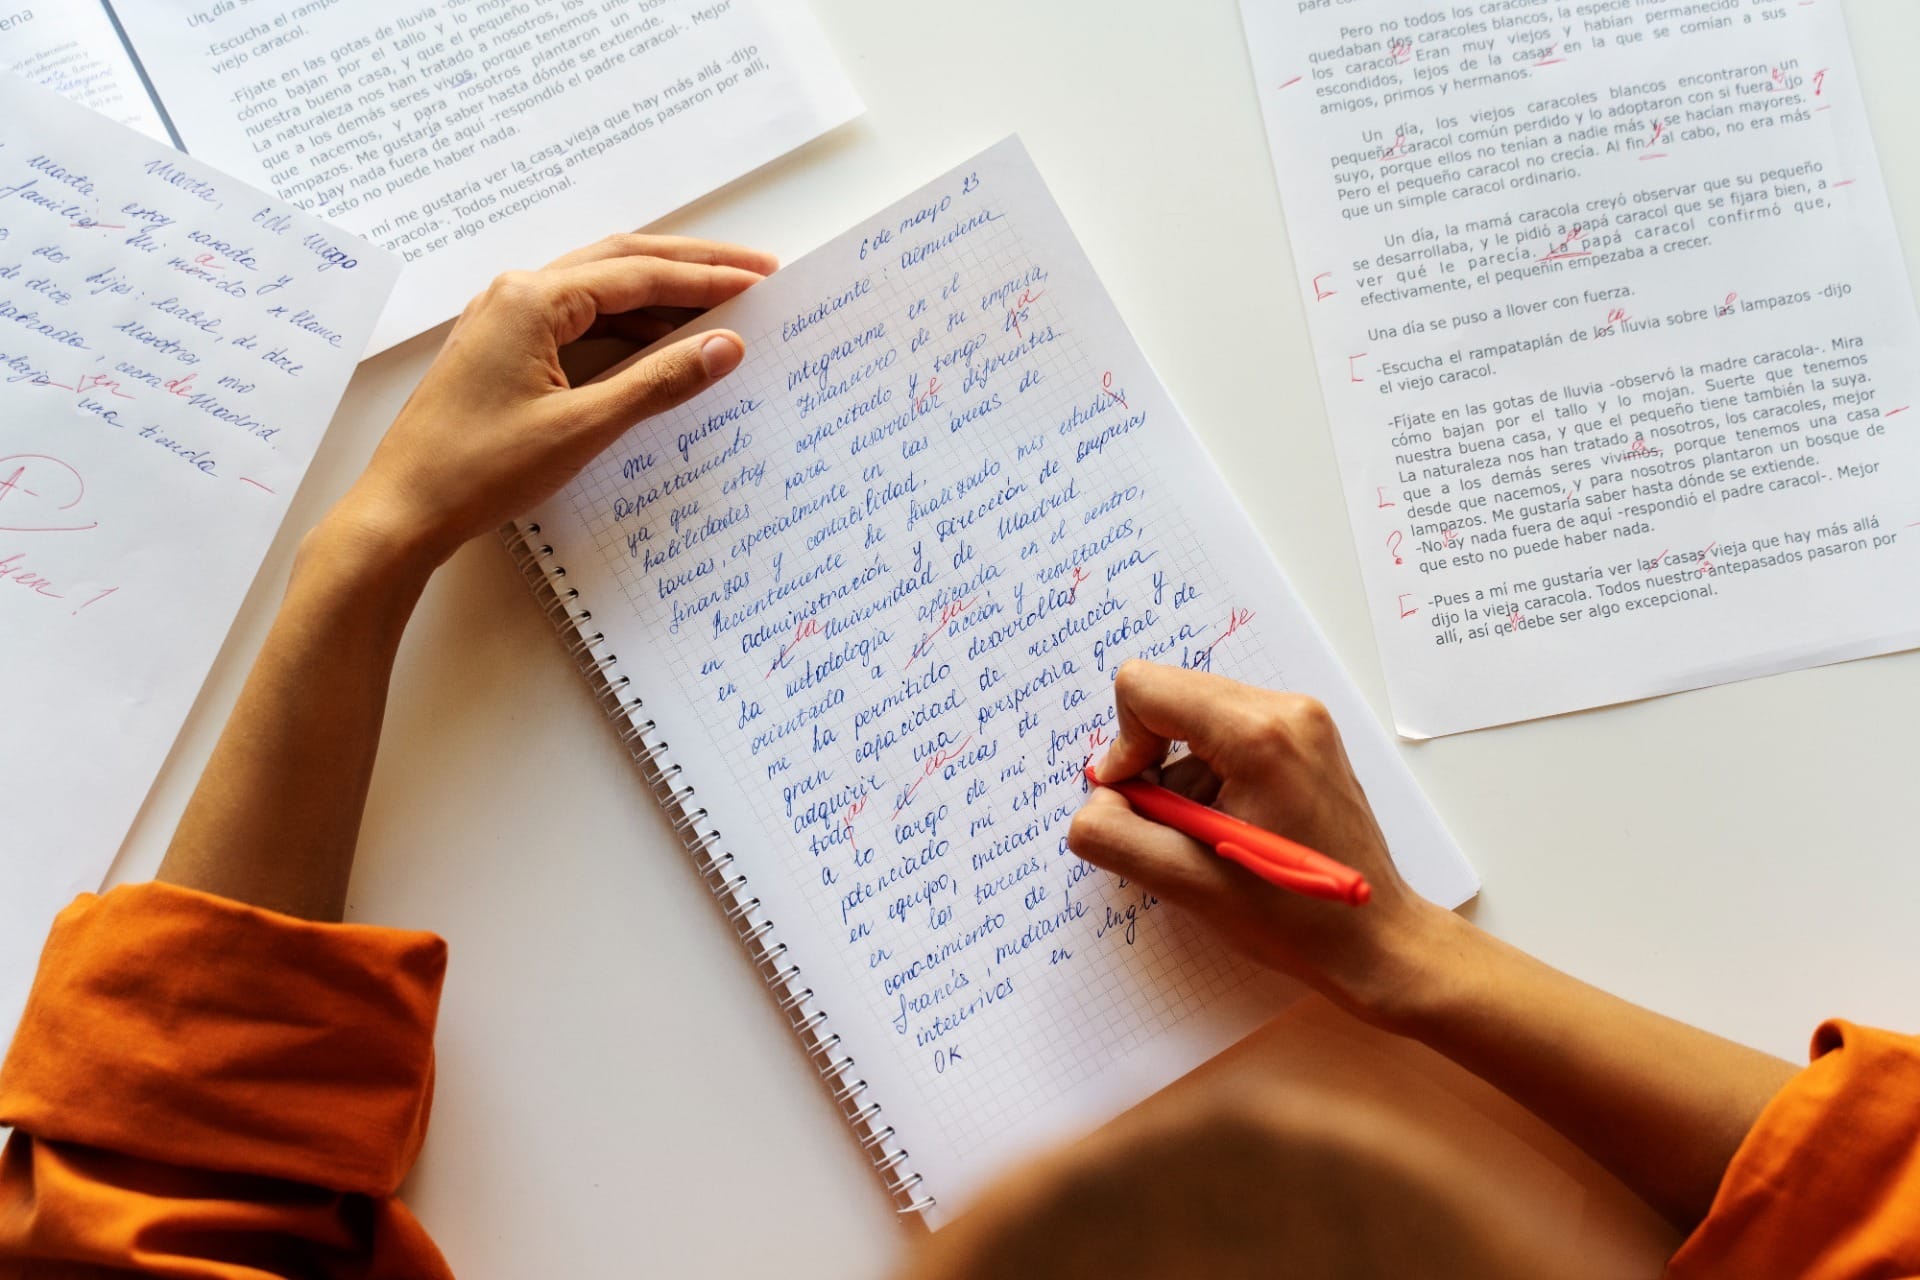 ena
en Barcelona
informático y
Un día se
-Escucha el rampa
viejo caracol.
-Fíjate en las gotas de lluvia -ob
cómo bajan por el tallo y lo mojan
nuestra buena casa, y que el pequeño
La naturaleza nos han tratado a nosotros, los
que a los demás seres vivos, porque tenemos una
que nacemos, y para nosotros plantaron un bos
lampazos. Me gustaría saber hasta dónde se extiende.
-No hay nada fuera de aquí -respondió el padre caracol-. Mejor
esto no puede haber nada.
a mí me gustaría ver la casa vieja que hay más allá -dijo
caracola-. Todos nuestros antepasados pasaron por allí,
be ser algo excepcional.
Marta, 6 de mayo
Marta. estoy casada y
familia. Mi marido se llama
a
dos hijos: Isabel, de doce
de diez. Nosotros
cerca de Madrid.
en
una tienda
A-
bien!
6 de mayo 23
Estudiante: Almudena
Me gustaría integrarme en el
Departamento Financiero de su empresa,
ya que estoy capacitado y tengo los
a
habilidades para desarrolar diferentes
tareas, especialmente en las áreas de
finanzas y contabilidad.
Recientemente he finalizado mis estudios
o
en administración y Dirección de Empresas
en el Universidad de Madrid.
la
La metodología aplicada en el centro,
orientada a el acción y resultados,
la
me ha permitido desarrollar una
gran capacidad de resolución y
adquirir una perspectiva global de
todo el areas de la empresa.
as la
a lo largo de mi formac haj
he
potenciado mi espiritu
u
en equipo, iniciativa y
en las tareas, a
conocimiento de idi
francés, mediante
intensivos en Ingl
OK
para co
Pero no todos los caracoles
quedaban dos caracoles blancos, la especie más
los caracol. Eran muy viejos y habían permanecido bien
es
escondidos, lejos de la casas en la que se comían a sus
amigos, primos y hermanos.
Un día, los viejos caracoles blancos encontraron un
pequeña caracol común perdido y lo adoptaron con si fuera ijo ?
suyo, porque ellos no tenían a nadie más y se hacían mayores.
Pero el pequeño caracol no crecía. Al fin i al cabo, no era más
y
que un simple caracol ordinario.
Un día, la mamá caracola creyó observar que su pequeño
se desarrollaba, y le pidió a papá caracol que se fijara bien, a
ver qué le parecía. La papá caracol confirmó que,
efectivamente, el pequeñín empezaba a crecer.
Una día se puso a llover con fuerza.
-Escucha el rampataplán de los lluvia sobre las lampazos -dijo
la o
el viejo caracol.
-Fíjate en las gotas de lluvia -observó la madre caracola-. Mira
cómo bajan por el tallo y lo mojan. Suerte que tenemos
nuestra buena casa, y que el pequeño tiene también la suya.
La naturaleza nos han tratado a nosotros, los caracoles, mejor
que a los demás seres vivimos, porque tenemos una casa
desde que nacemos, y para nosotros plantaron un bosque de
lampazos. Me gustaría saber hasta dónde se extiende.
? -No ay nada fuera de aquí -respondió el padre caracol-. Mejor
que esto no puede haber nada.
-Pues a mí me gustaría ver las casas vieja que hay más allá
dijo la vieja caracola. Todos nuestro antepasados pasaron por
allí, así qe debe ser algo excepcional.